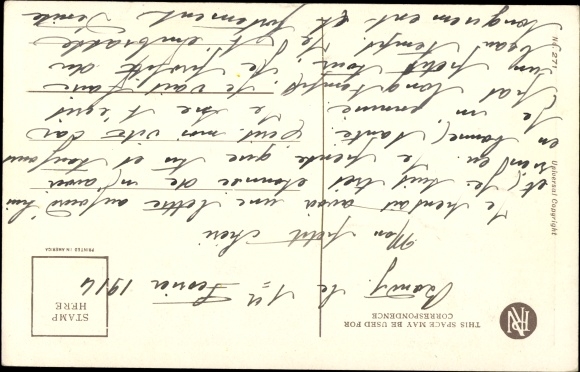 THIS SPACE MAY BE USED FOR
CORRESPONDENCE
STAMP
HERE
PRINTED IN AMERICA
Universal Copyright
No 271
le 1er Fevrier 1914
Mon petit cheri
Je pensais avoir une lettre aujourd'hui
et je suis très étonnée de n'avoir
rien. Je pense que tu es toujours
en bonne santé. Ecris moi vite car
je m'ennuie
pas longtemps Je vais faire
un petit tour je profite du
beau temps. Je t'embrasse
longuement et fortement